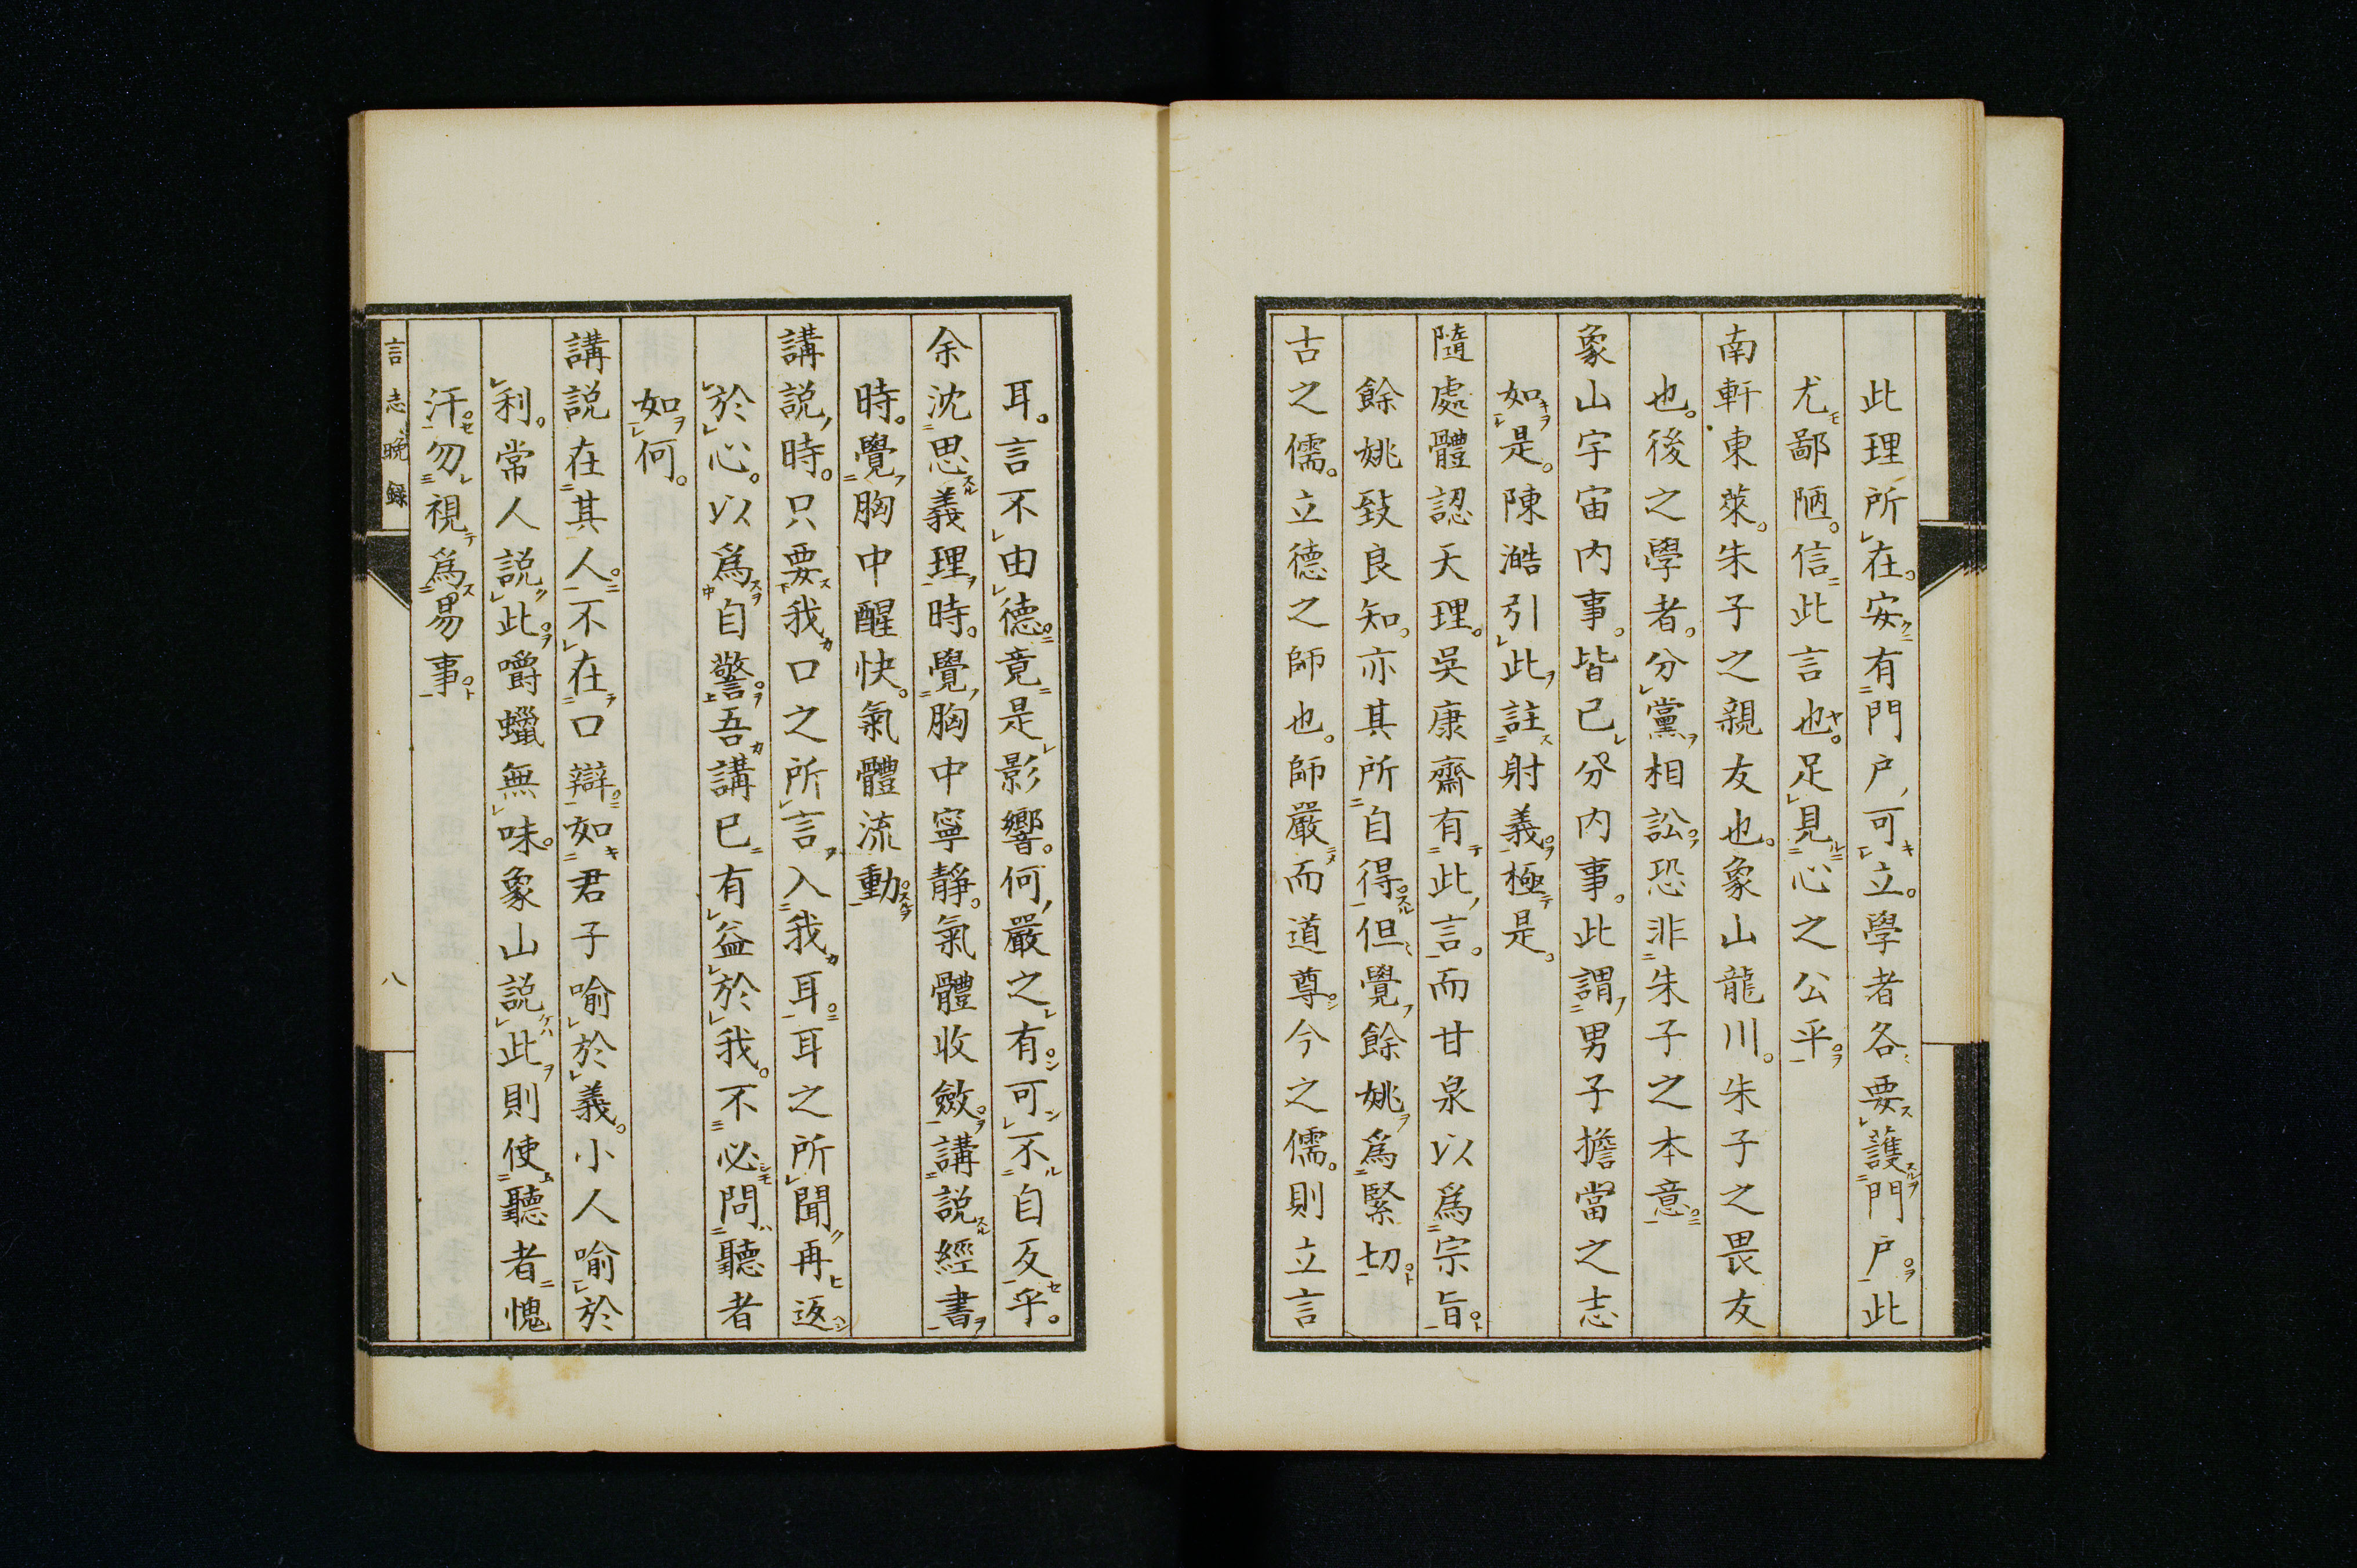 此理所在。安有門戸可立。學者各要護門戸。此
尤鄙陋。信此言也。足見心之公平。
南軒東萊。朱子之親友也。象山龍川。朱子之畏友
也。後之學者。分黨相訟。恐非朱子之本意。
象山宇宙内事。皆己分内事。此謂男子擔當之志
如是。陳澔引此註射義。極是。
隨處體認天理。吳康齋有此言。而甘泉以爲宗旨。
餘姚致良知。亦其所自得。但覺餘姚爲緊切。
古之儒。立德之師也。師嚴而道尊。今之儒。則立言
耳。言不由德。竟是影響。何嚴之有。可不自反乎。
余沈思義理時。覺胸中寧靜。氣體收斂。講説經書
時。覺胸中醒快。氣體流動。
講説時。只要我口之所言。入我耳。耳之所聞。再返
於心。以爲自警。吾講已有益於我。不必問聽者
如何。
講説在其人。不在口辯。如君子喻於義。小人喻於
利。常人説此。嚼蠟無味。象山説此。則使聽者愧
汗。勿視爲易事。
言志晩録
八